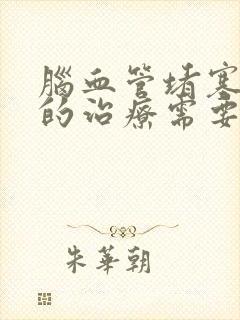 腦血管堵塞
的治療需要
朱華朝